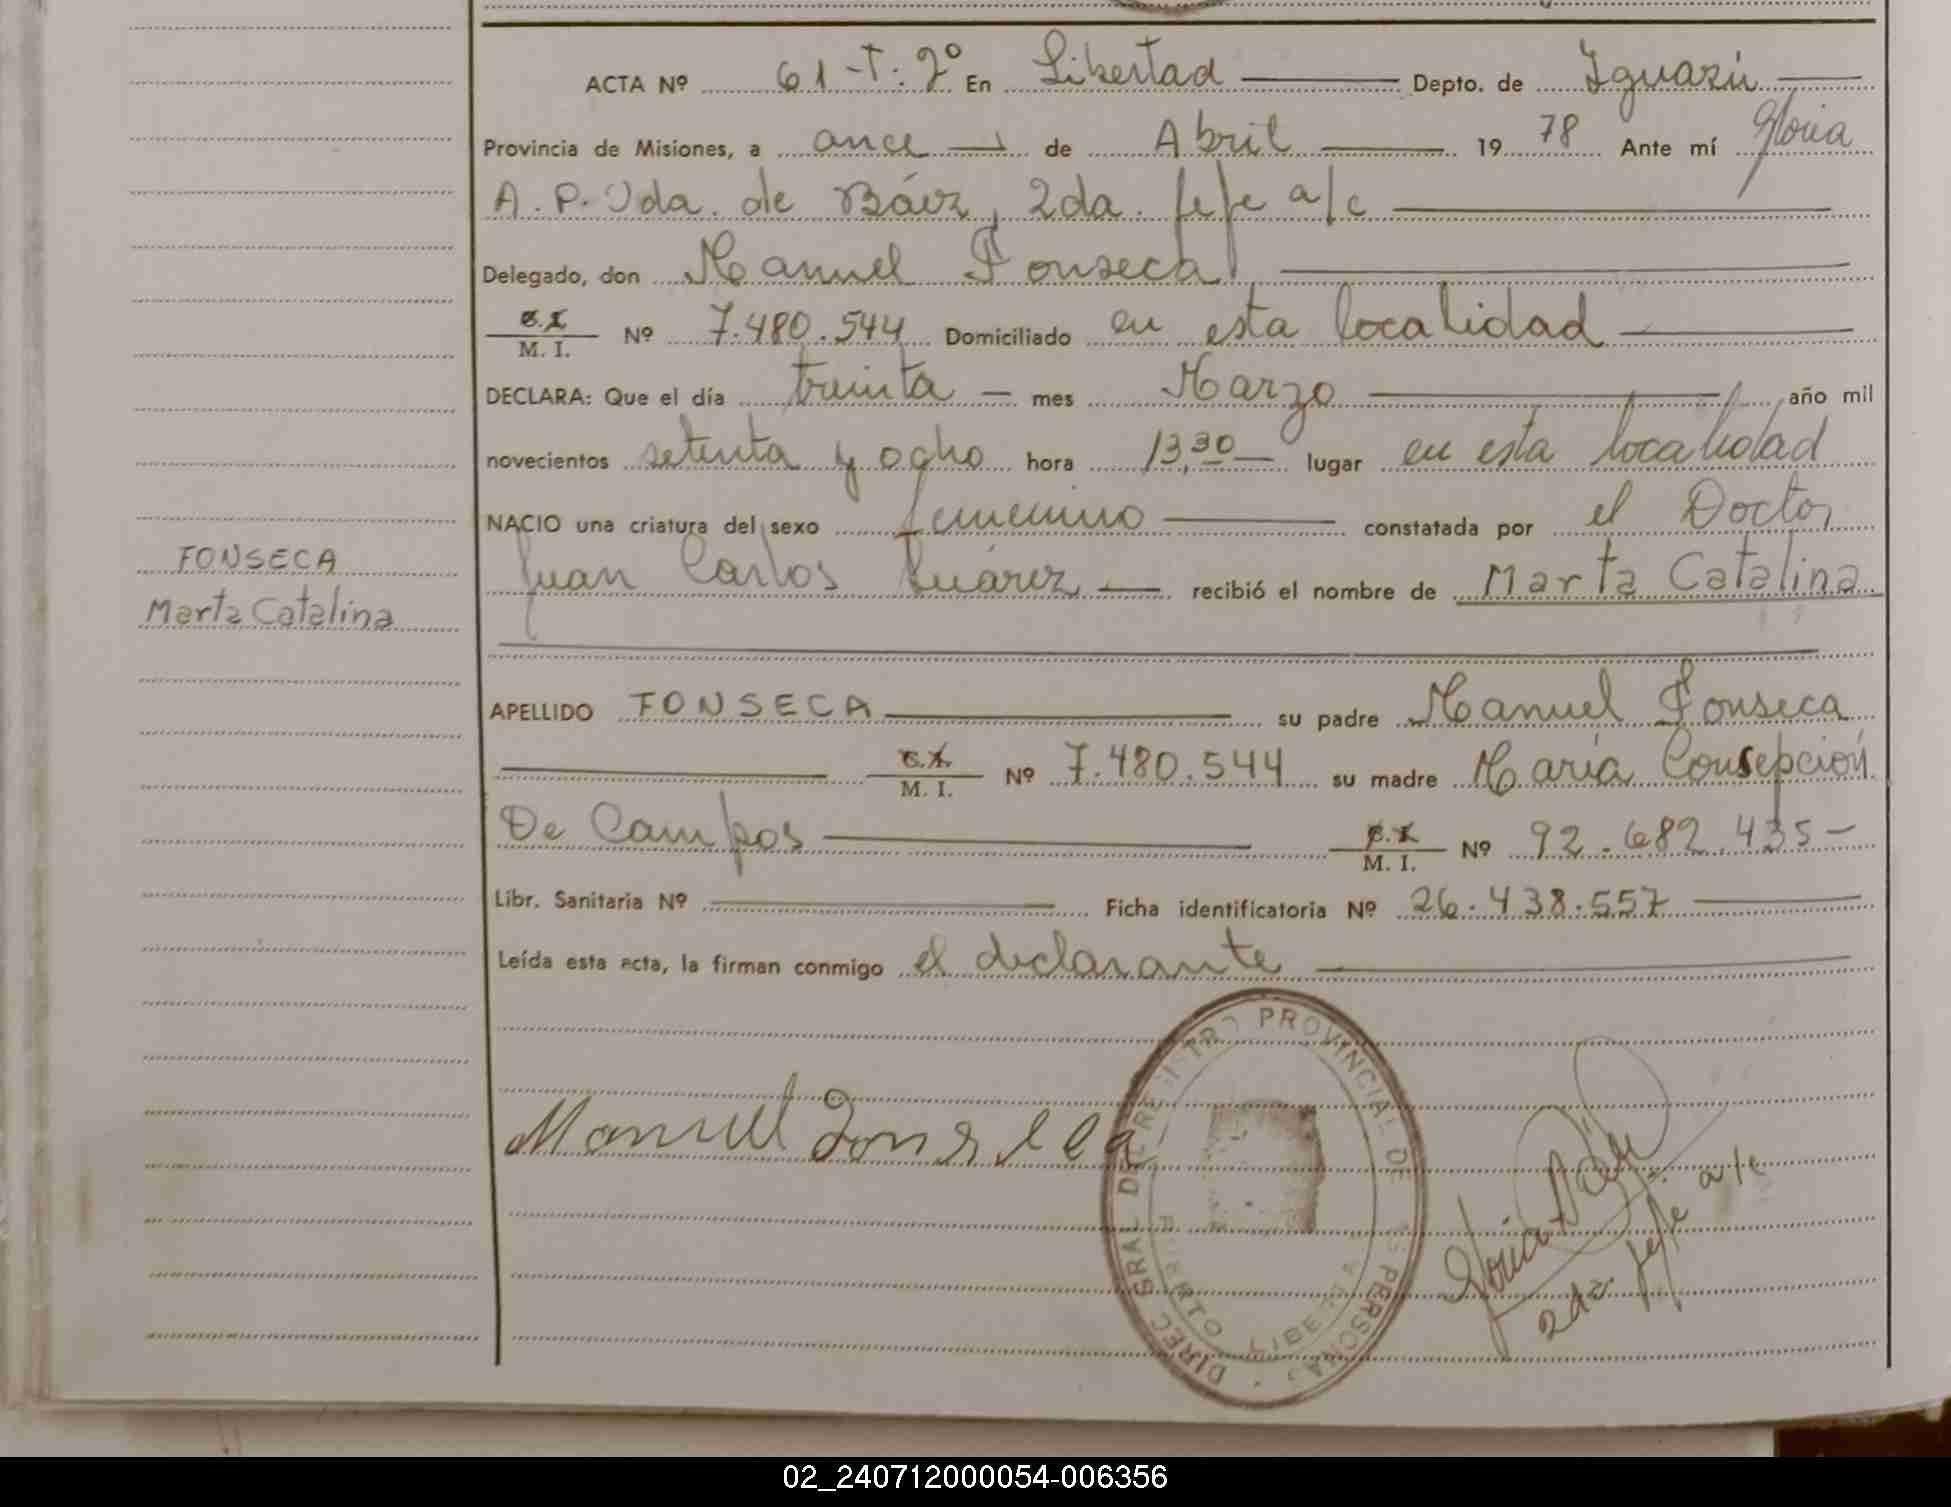 ACTA Nº 61-T: 2º En Libertad Depto. de Iguazú
Provincia de Misiones, a once de Abril 1978 Ante mí Gloria
A. P. Vda. de Báez, 2da. Jefe a/c
Delegado, don Manuel Fonseca
C.I. M. I. Nº 7.480.544 Domiciliado en esta localidad
DECLARA: Que el día treinta mes Marzo año mil
novecientos setenta y ocho hora 13,30 lugar en esta localidad
NACIO una criatura del sexo femenino constatada por el Doctor
FONSECA
Juan Carlos Suárez recibió el nombre de Marta Catalina
Marta Catalina
APELLIDO FONSECA su padre Manuel Fonseca
C.I. M. I. Nº 7.480.544 su madre María Consepción
De Campos C.I. M. I. Nº 92.682.435
Libr. Sanitaria Nº Ficha identificatoria Nº 26.438.557
Leída esta acta, la firman conmigo el declarante
Manuel Fonseca
DIREC. GRAL. DEL REGISTRO PROVINCIAL DE LAS PERSONAS
LIBERTAD
2da. Jefe a/c
02_240712000054-006356